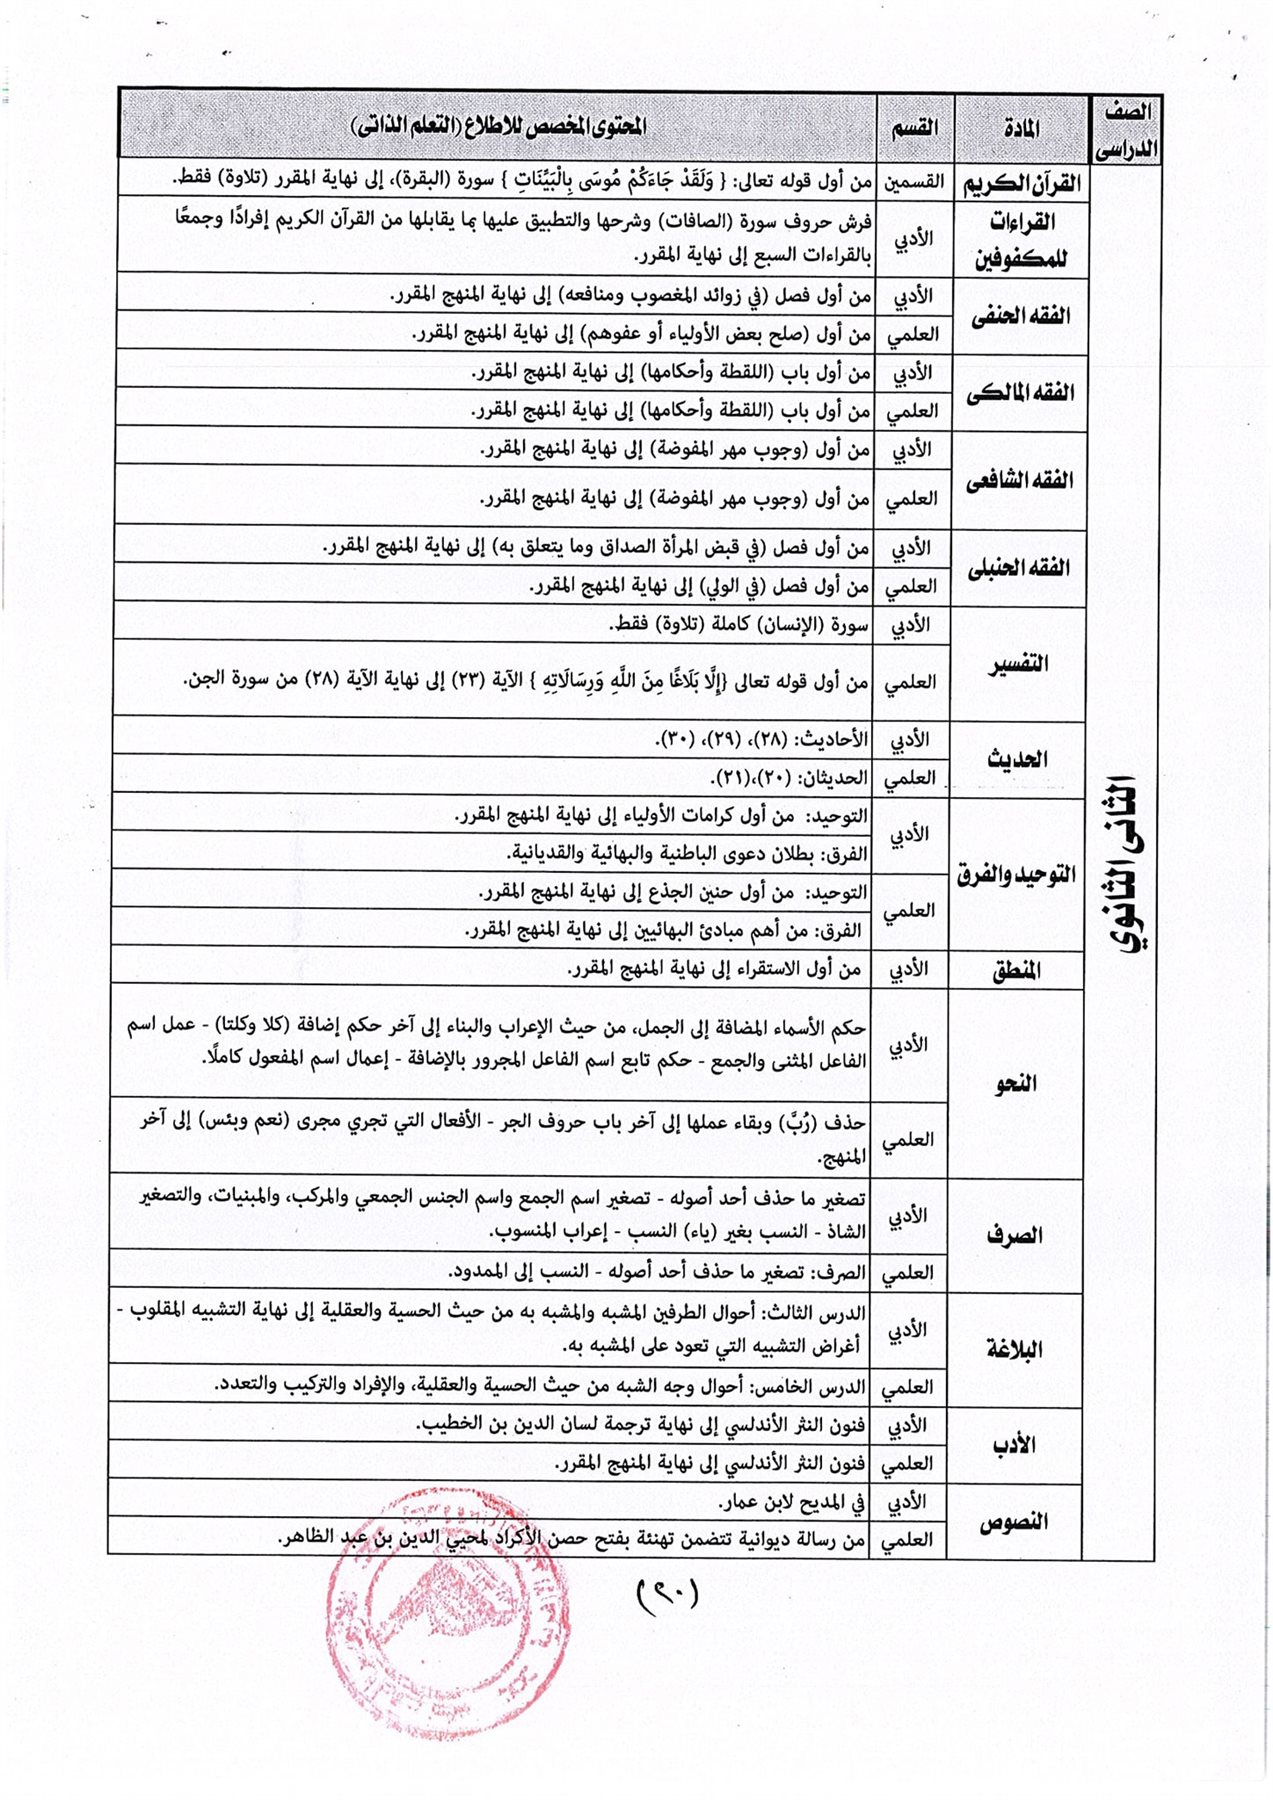 الصف الدراسى
المادة
القسم
المحتوى المخصص للاطلاع (التعلم الذاتى)
الثانى الثانوي
القرآن الكريم
القسمين
من أول قوله تعالى: { وَلَقَدْ جَاءَكُمْ مُوسَى بِالْبَيِّنَاتِ } سورة (البقرة)، إلى نهاية المقرر (تلاوة) فقط.
القراءات
للمكفوفين
الأدبي
فرش حروف سورة (الصافات) وشرحها والتطبيق عليها بما يقابلها من القرآن الكريم إفرادًا وجمعًا
بالقراءات السبع إلى نهاية المقرر.
الفقه الحنفى
الأدبي
من أول فصل (في زوائد المغصوب ومنافعه) إلى نهاية المنهج المقرر.
العلمي
من أول (صلح بعض الأولياء أو عفوهم) إلى نهاية المنهج المقرر.
الفقه المالكى
الأدبي
من أول باب (اللقطة وأحكامها) إلى نهاية المنهج المقرر.
العلمي
من أول باب (اللقطة وأحكامها) إلى نهاية المنهج المقرر.
الفقه الشافعى
الأدبي
من أول (وجوب مهر المفوضة) إلى نهاية المنهج المقرر.
العلمي
من أول (وجوب مهر المفوضة) إلى نهاية المنهج المقرر.
الفقه الحنبلى
الأدبي
من أول فصل (في قبض المرأة الصداق وما يتعلق به) إلى نهاية المنهج المقرر.
العلمي
من أول فصل (في الولي) إلى نهاية المنهج المقرر.
التفسير
الأدبي
سورة (الإنسان) كاملة (تلاوة) فقط.
العلمي
من أول قوله تعالى {إِلَّا بَلَاغًا مِنَ اللَّهِ وَرِسَالَاتِهِ } الآية (٢٣) إلى نهاية الآية (٢٨) من سورة الجن.
الحديث
الأدبي
الأحاديث: (٢٨)، (٢٩)، (٣٠).
العلمي
الحديثان: (٢٠)،(٢١).
التوحيد والفرق
الأدبي
التوحيد: من أول كرامات الأولياء إلى نهاية المنهج المقرر.
الفرق: بطلان دعوى الباطنية والبهائية والقديانية.
العلمي
التوحيد: من أول حنين الجذع إلى نهاية المنهج المقرر.
الفرق: من أهم مبادئ البهائيين إلى نهاية المنهج المقرر.
المنطق
الأدبي
من أول الاستقراء إلى نهاية المنهج المقرر.
النحو
الأدبي
حكم الأسماء المضافة إلى الجمل، من حيث الإعراب والبناء إلى آخر حكم إضافة (كلا وكلتا) - عمل اسم
الفاعل المثنى والجمع - حكم تابع اسم الفاعل المجرور بالإضافة - إعمال اسم المفعول كاملًا.
العلمي
حذف (رُبَّ) وبقاء عملها إلى آخر باب حروف الجر - الأفعال التي تجري مجرى (نعم وبئس) إلى آخر
المنهج.
الصرف
الأدبي
تصغير ما حذف أحد أصوله - تصغير اسم الجمع واسم الجنس الجمعي والمركب، والمبنيات، والتصغير
الشاذ - النسب بغير (ياء) النسب - إعراب المنسوب.
العلمي
الصرف: تصغير ما حذف أحد أصوله - النسب إلى الممدود.
البلاغة
الأدبي
الدرس الثالث: أحوال الطرفين المشبه والمشبه به من حيث الحسية والعقلية إلى نهاية التشبيه المقلوب -
أغراض التشبيه التي تعود على المشبه به.
العلمي
الدرس الخامس: أحوال وجه الشبه من حيث الحسية والعقلية، والإفراد والتركيب والتعدد.
الأدب
الأدبي
فنون النثر الأندلسي إلى نهاية ترجمة لسان الدين بن الخطيب.
العلمي
فنون النثر الأندلسي إلى نهاية المنهج المقرر.
النصوص
الأدبي
في المديح لابن عمار.
العلمي
من رسالة ديوانية تتضمن تهنئة بفتح حصن الأكراد لمحيي الدين بن عبد الظاهر.
(٢٠)